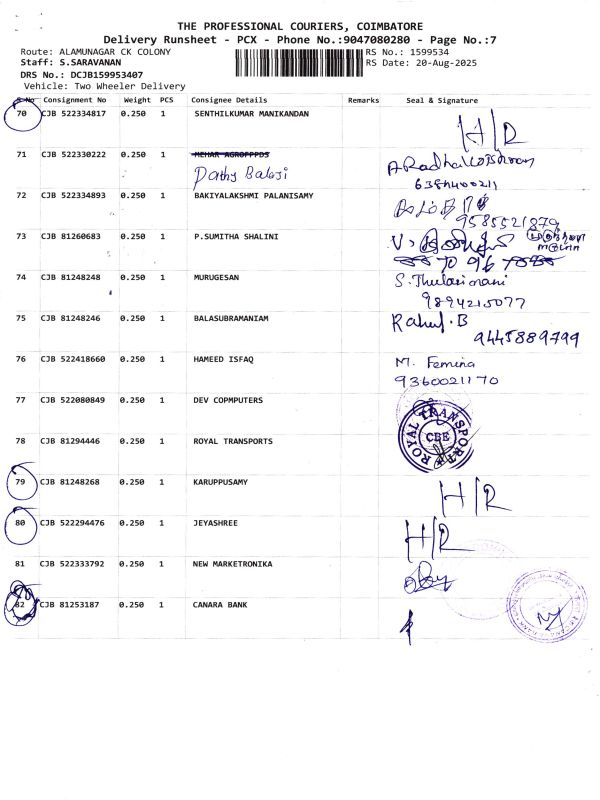 THE PROFESSIONAL COURIERS, COIMBATORE
Delivery Runsheet - PCX - Phone No.:9047080280 - Page No.:7
Route: ALAMUNAGAR CK COLONY RS No.: 1599534
Staff: S.SARAVANAN RS Date: 20-Aug-2025
DRS No.: DCJB159953407
Vehicle: Two Wheeler Delivery
S No Consignment No Weight PCS Consignee Details Remarks Seal & Signature
70 CJB 522334817 0.250 1 SENTHILKUMAR MANIKANDAN H/R
71 CJB 522330222 0.250 1 MEHAR AGROFPPDS
Balaji
72 CJB 522334893 0.250 1 BAKIYALAKSHMI PALANISAMY
9585521879
73 CJB 81260683 0.250 1 P.SUMITHA SHALINI
74 CJB 81248248 0.250 1 MURUGESAN S. Thulasimani
9894215077
75 CJB 81248246 0.250 1 BALASUBRAMANIAM Rahul.B
9445889799
76 CJB 522418660 0.250 1 HAMEED ISFAQ M. Femina
9360021170
77 CJB 522080849 0.250 1 DEV COPMPUTERS
78 CJB 81294446 0.250 1 ROYAL TRANSPORTS ROYAL TRANSPORT CBE
79 CJB 81248268 0.250 1 KARUPPUSAMY H/R
80 CJB 522294476 0.250 1 JEYASHREE H/R
81 CJB 522333792 0.250 1 NEW MARKETRONIKA
82 CJB 81253187 0.250 1 CANARA BANK